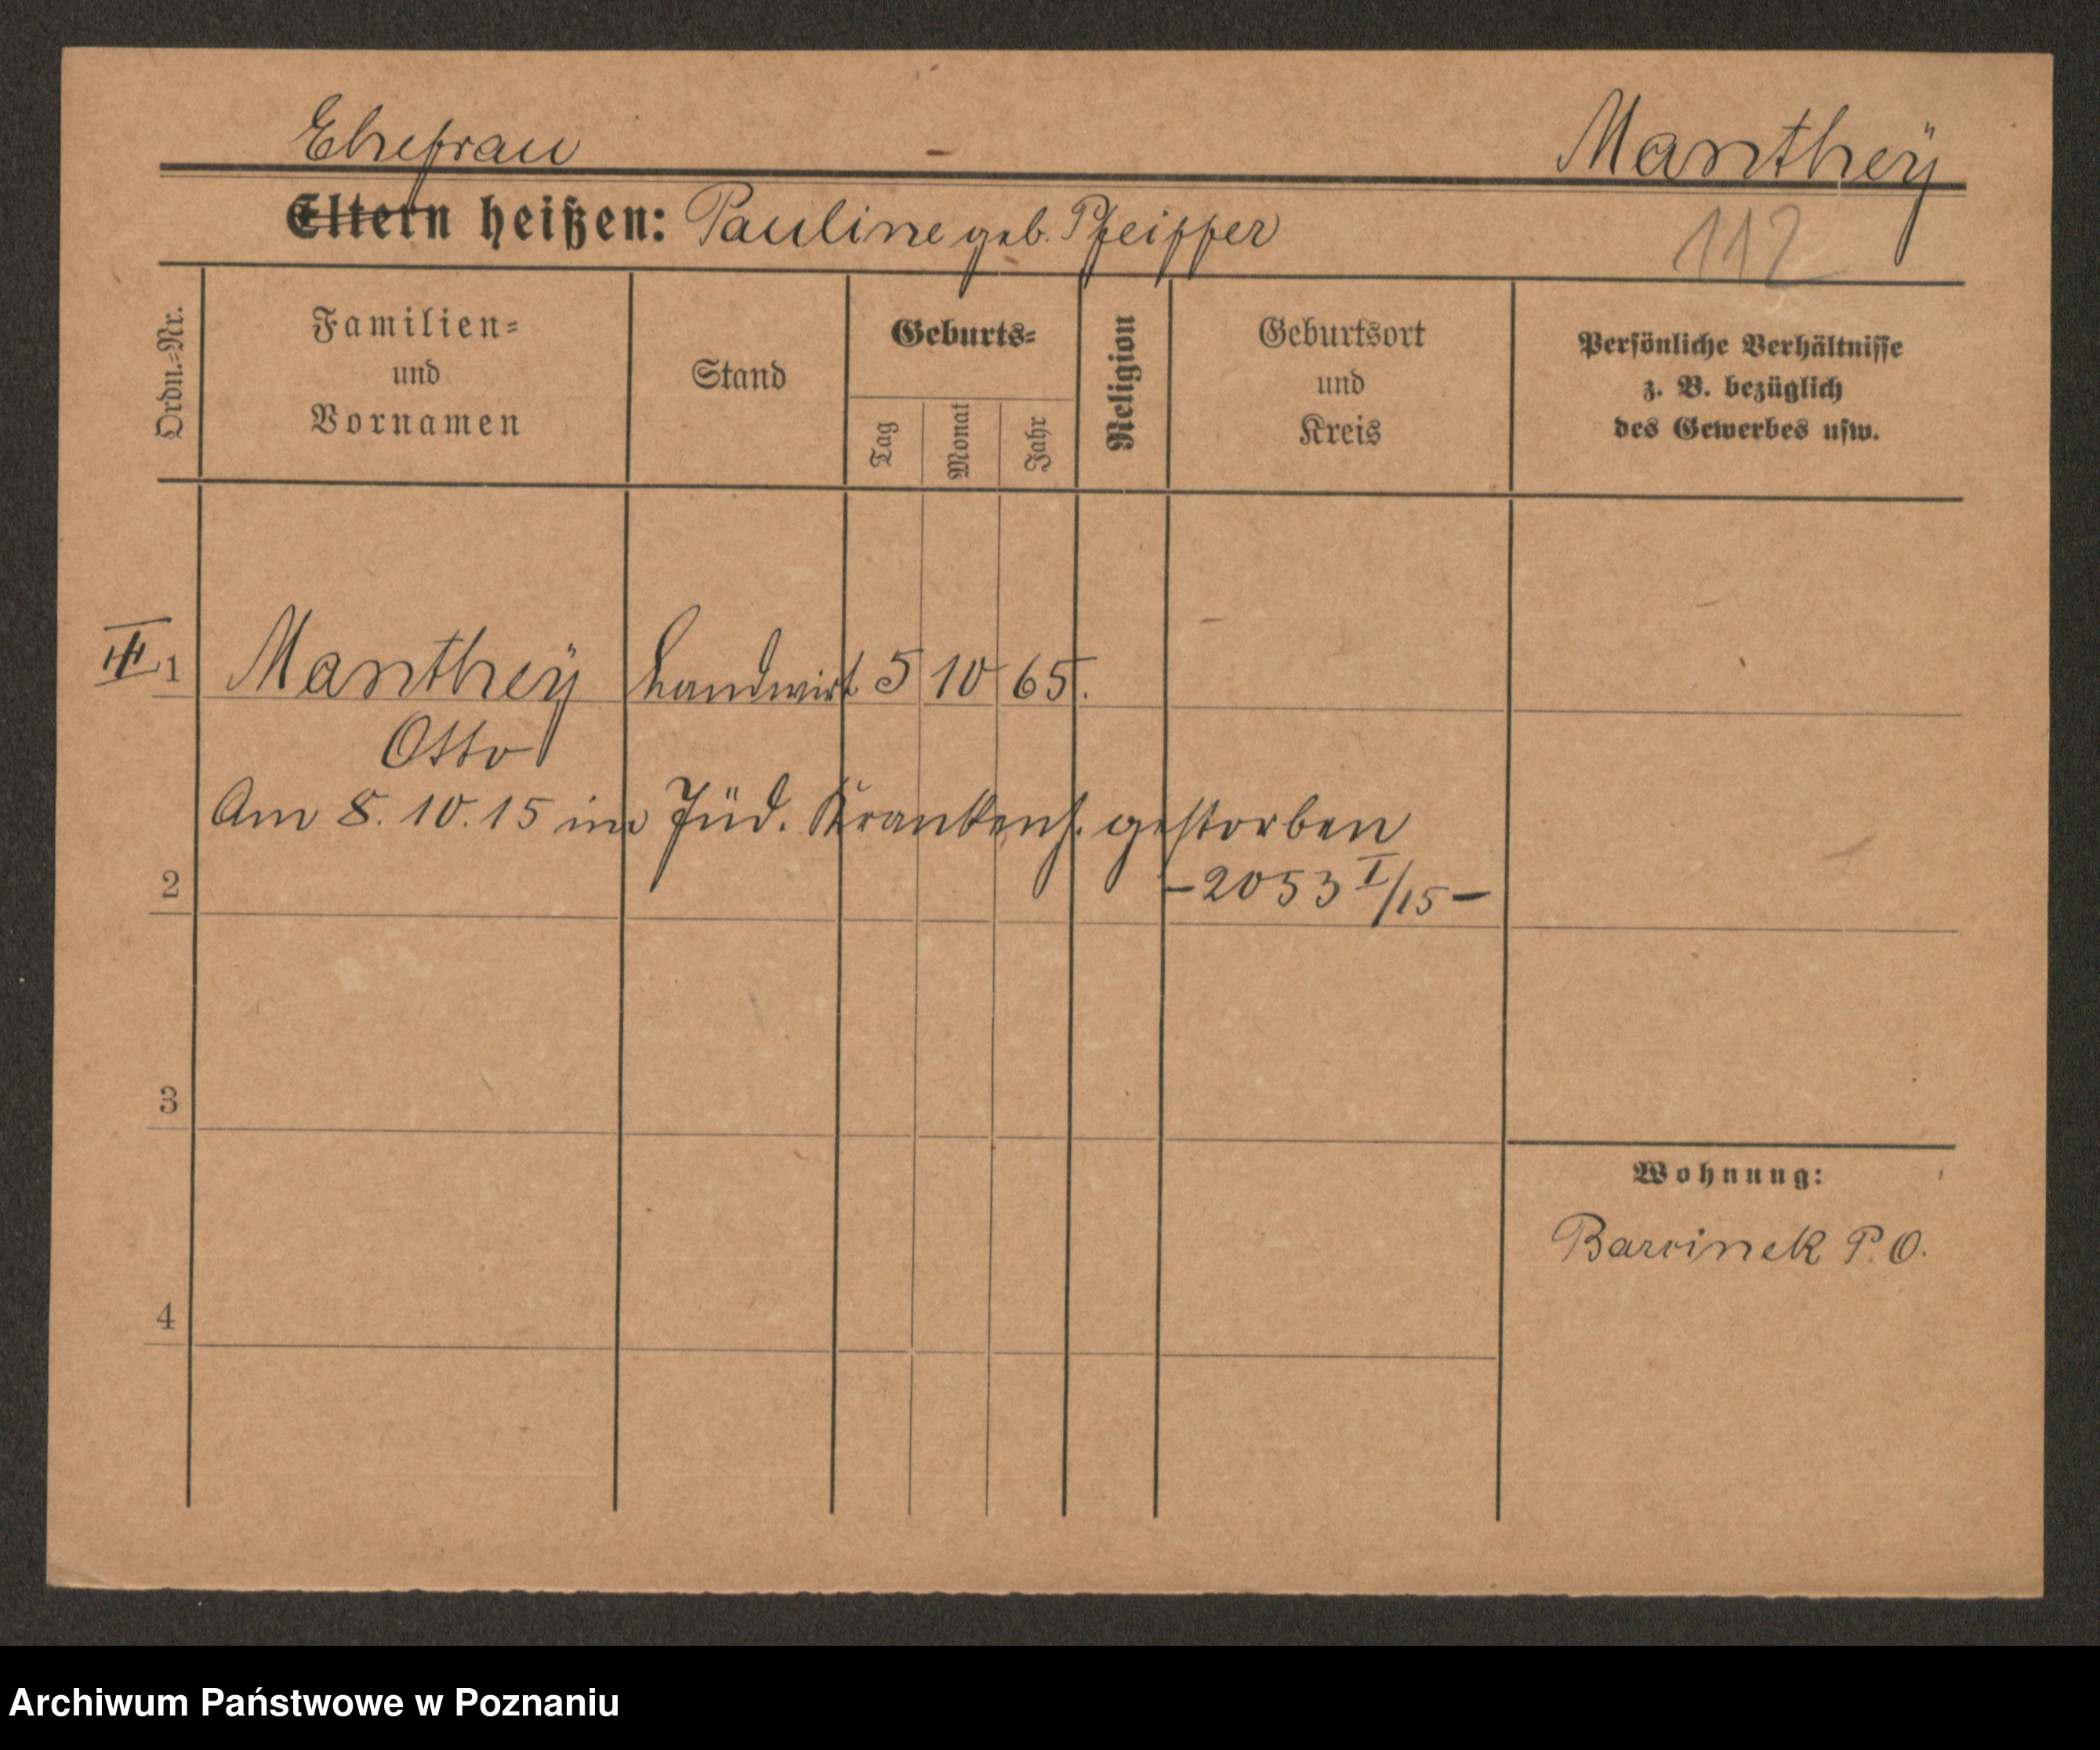 Ehefrau Manthey
Eltern heißen: Pauline geb. Pfeiffer
112
Ordn.-Nr.
Familien-
und
Vornamen
Stand
Geburts-
Tag
Monat
Jahr
Religion
Geburtsort
und
Kreis
Persönliche Verhältnisse
z. B. bezüglich
des Gewerbes usw.
1 Manthey Landwirt 5 10 65.
Otto
Am 8. 10. 15 im Jüd. Krankenh. gestorben
2 - 2053 I/15 -
3
Wohnung:
Barcinek P. O.
4
Archiwum Państwowe w Poznaniu